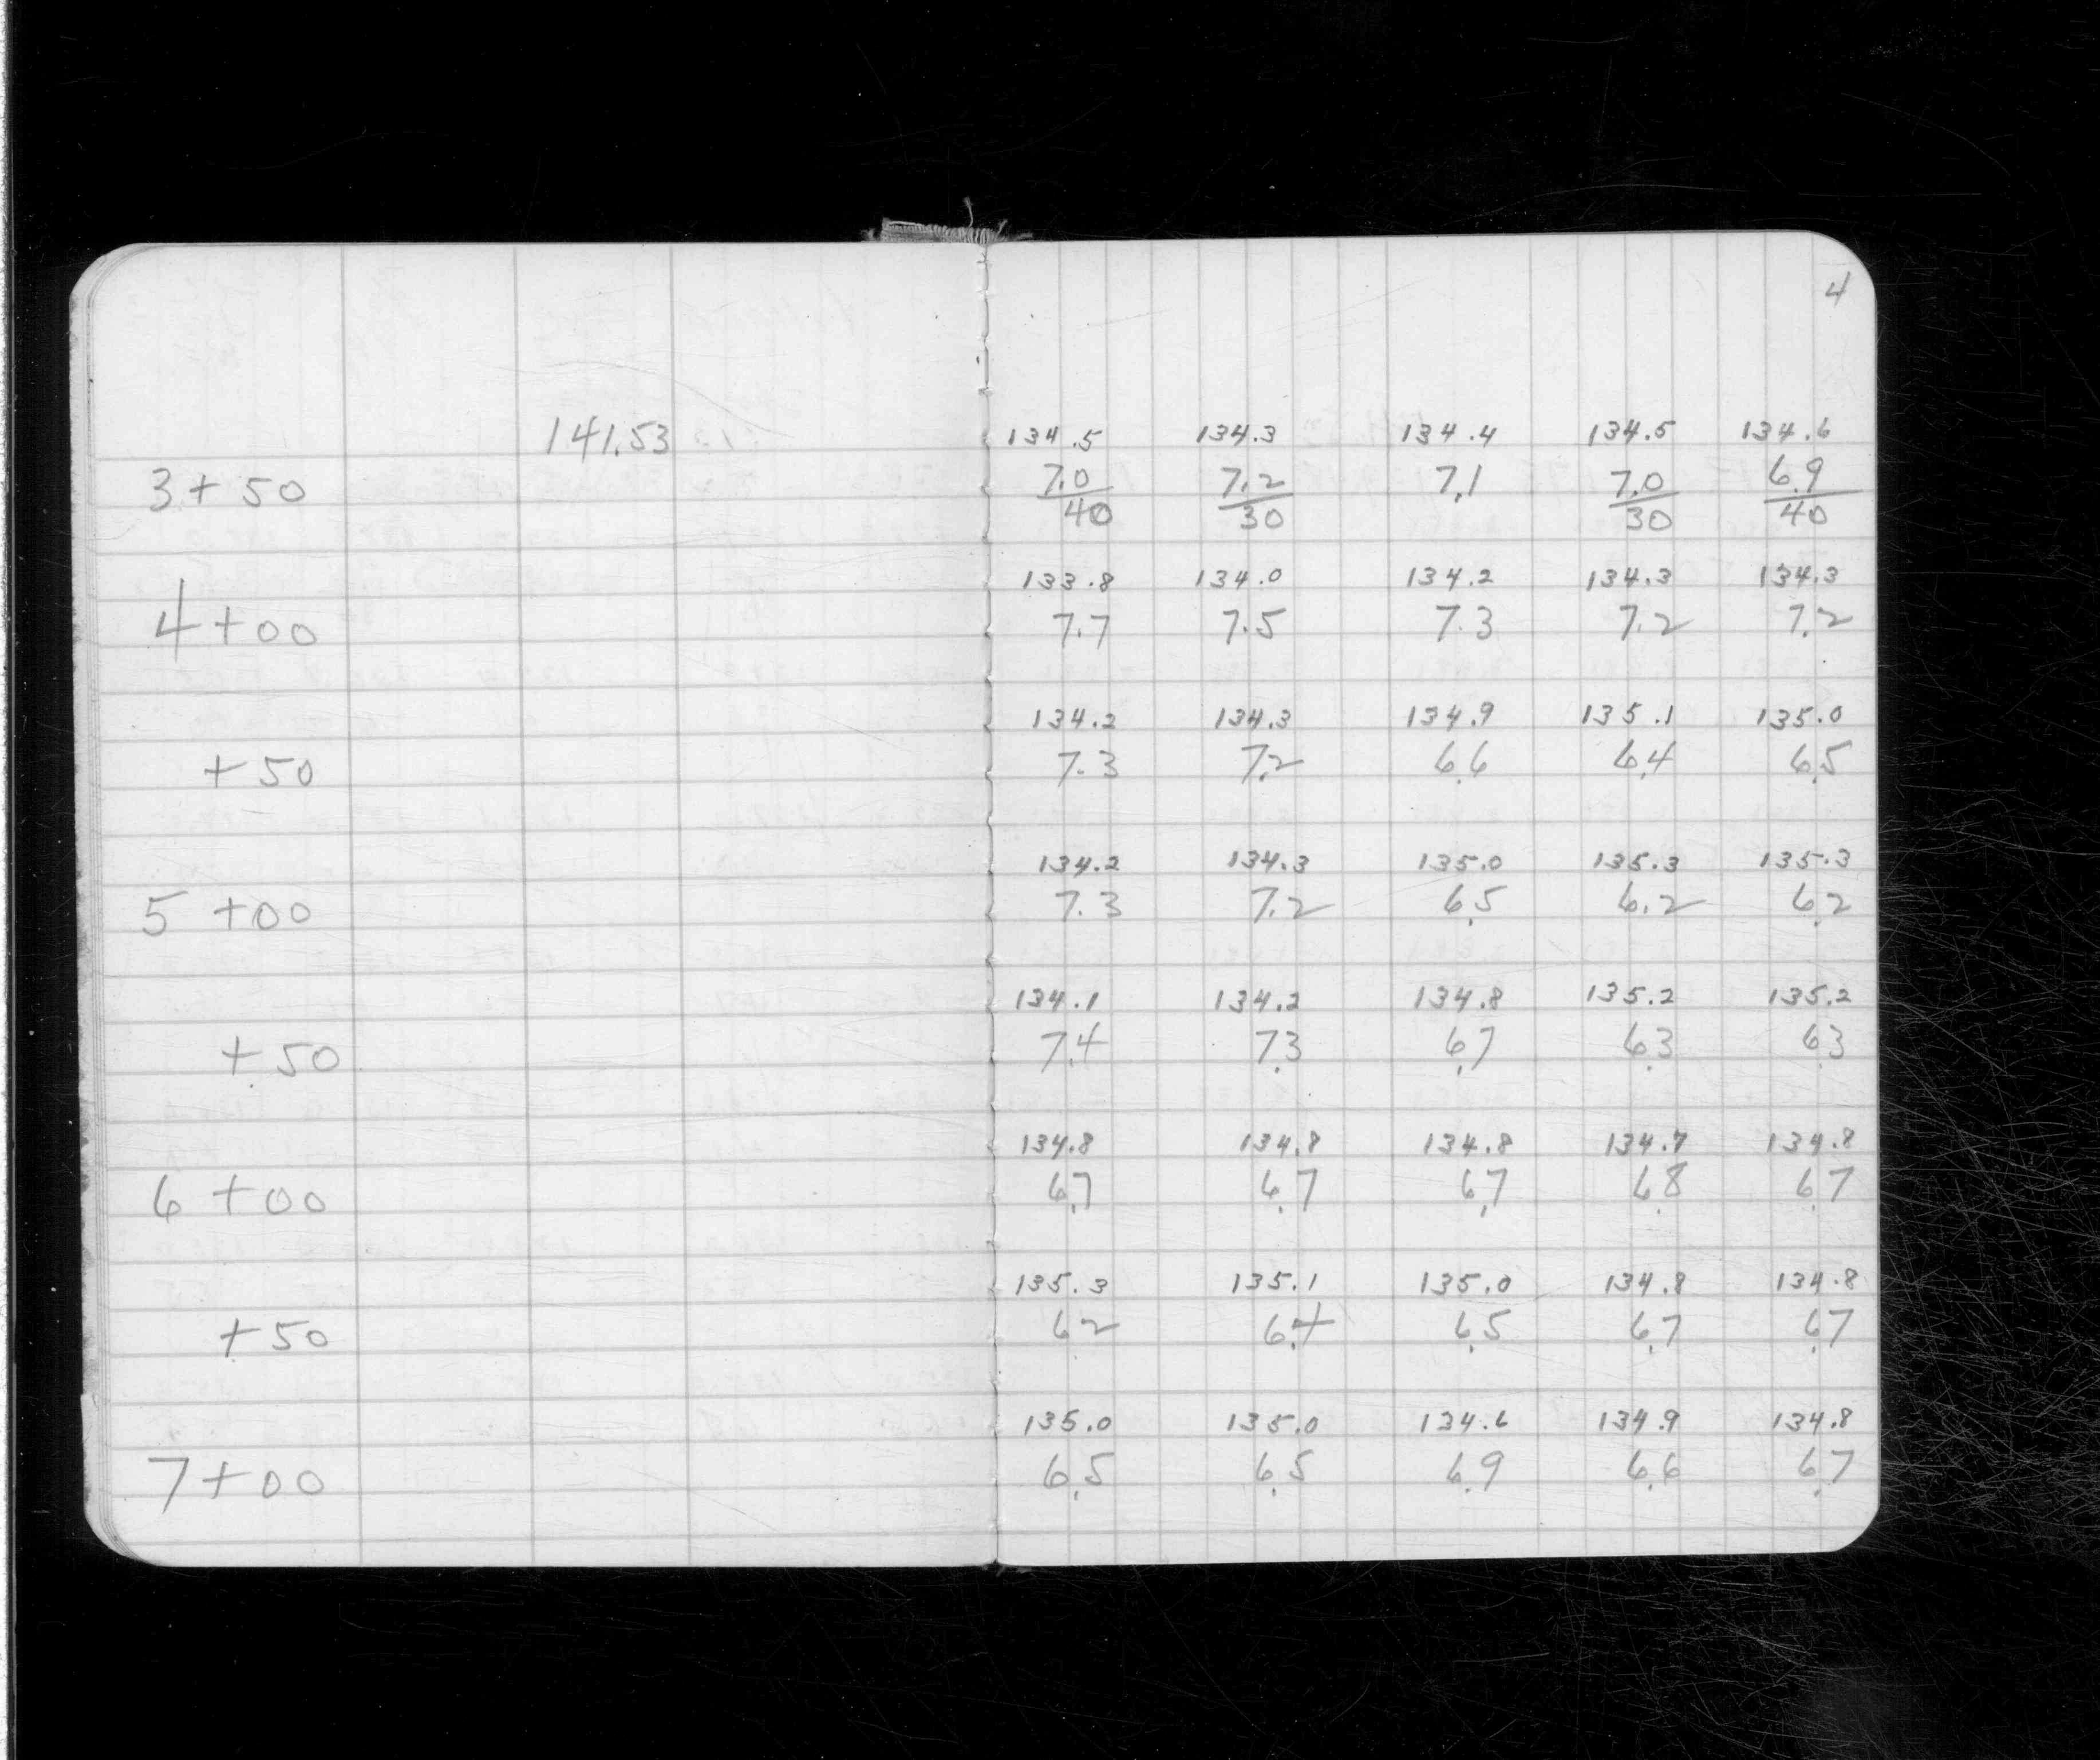 4
141.53 134.5 134.3 134.4 134.5 134.6
3+50 7.0/40 7.2/30 7.1 7.0/30 6.9/40
133.8 134.0 134.2 134.3 134.3
4+00 7.7 7.5 7.3 7.2 7.2
134.2 134.3 134.9 135.1 135.0
+50 7.3 7.2 6.6 6.4 6.5
134.2 134.3 135.0 135.3 135.3
5+00 7.3 7.2 6.5 6.2 6.2
134.1 134.2 134.8 135.2 135.2
+50 7.4 7.3 6.7 6.3 6.3
134.8 134.8 134.8 134.7 134.8
6+00 6.7 6.7 6.7 6.8 6.7
135.3 135.1 135.0 134.8 134.8
+50 6.2 6.4 6.5 6.7 6.7
135.0 135.0 134.6 134.9 134.8
7+00 6.5 6.5 6.9 6.6 6.7